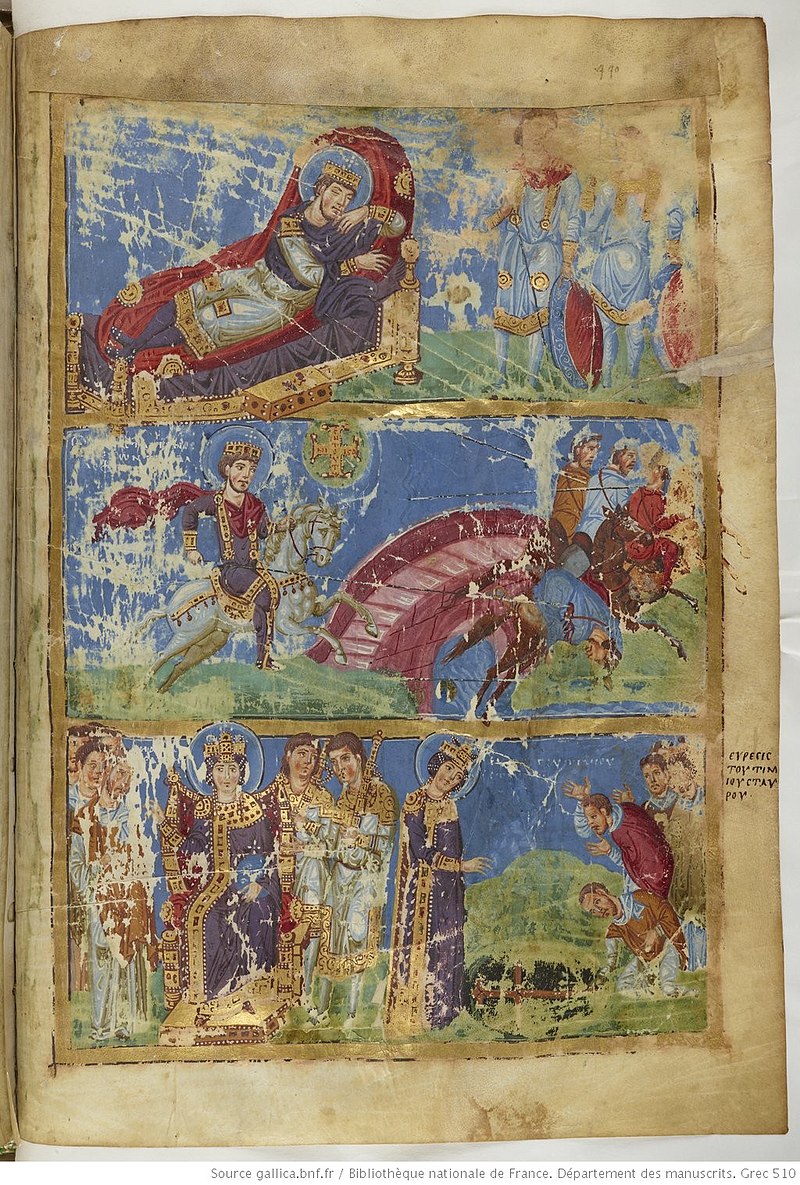 440
ΕΥΡΕϹΙϹ
ΤΟΥ ΤΙΜ
ΙΟΥ ϹΤΑΥ
ΡΟΥ·
Source gallica.bnf.fr / Bibliothèque nationale de France. Département des manuscrits. Grec 510